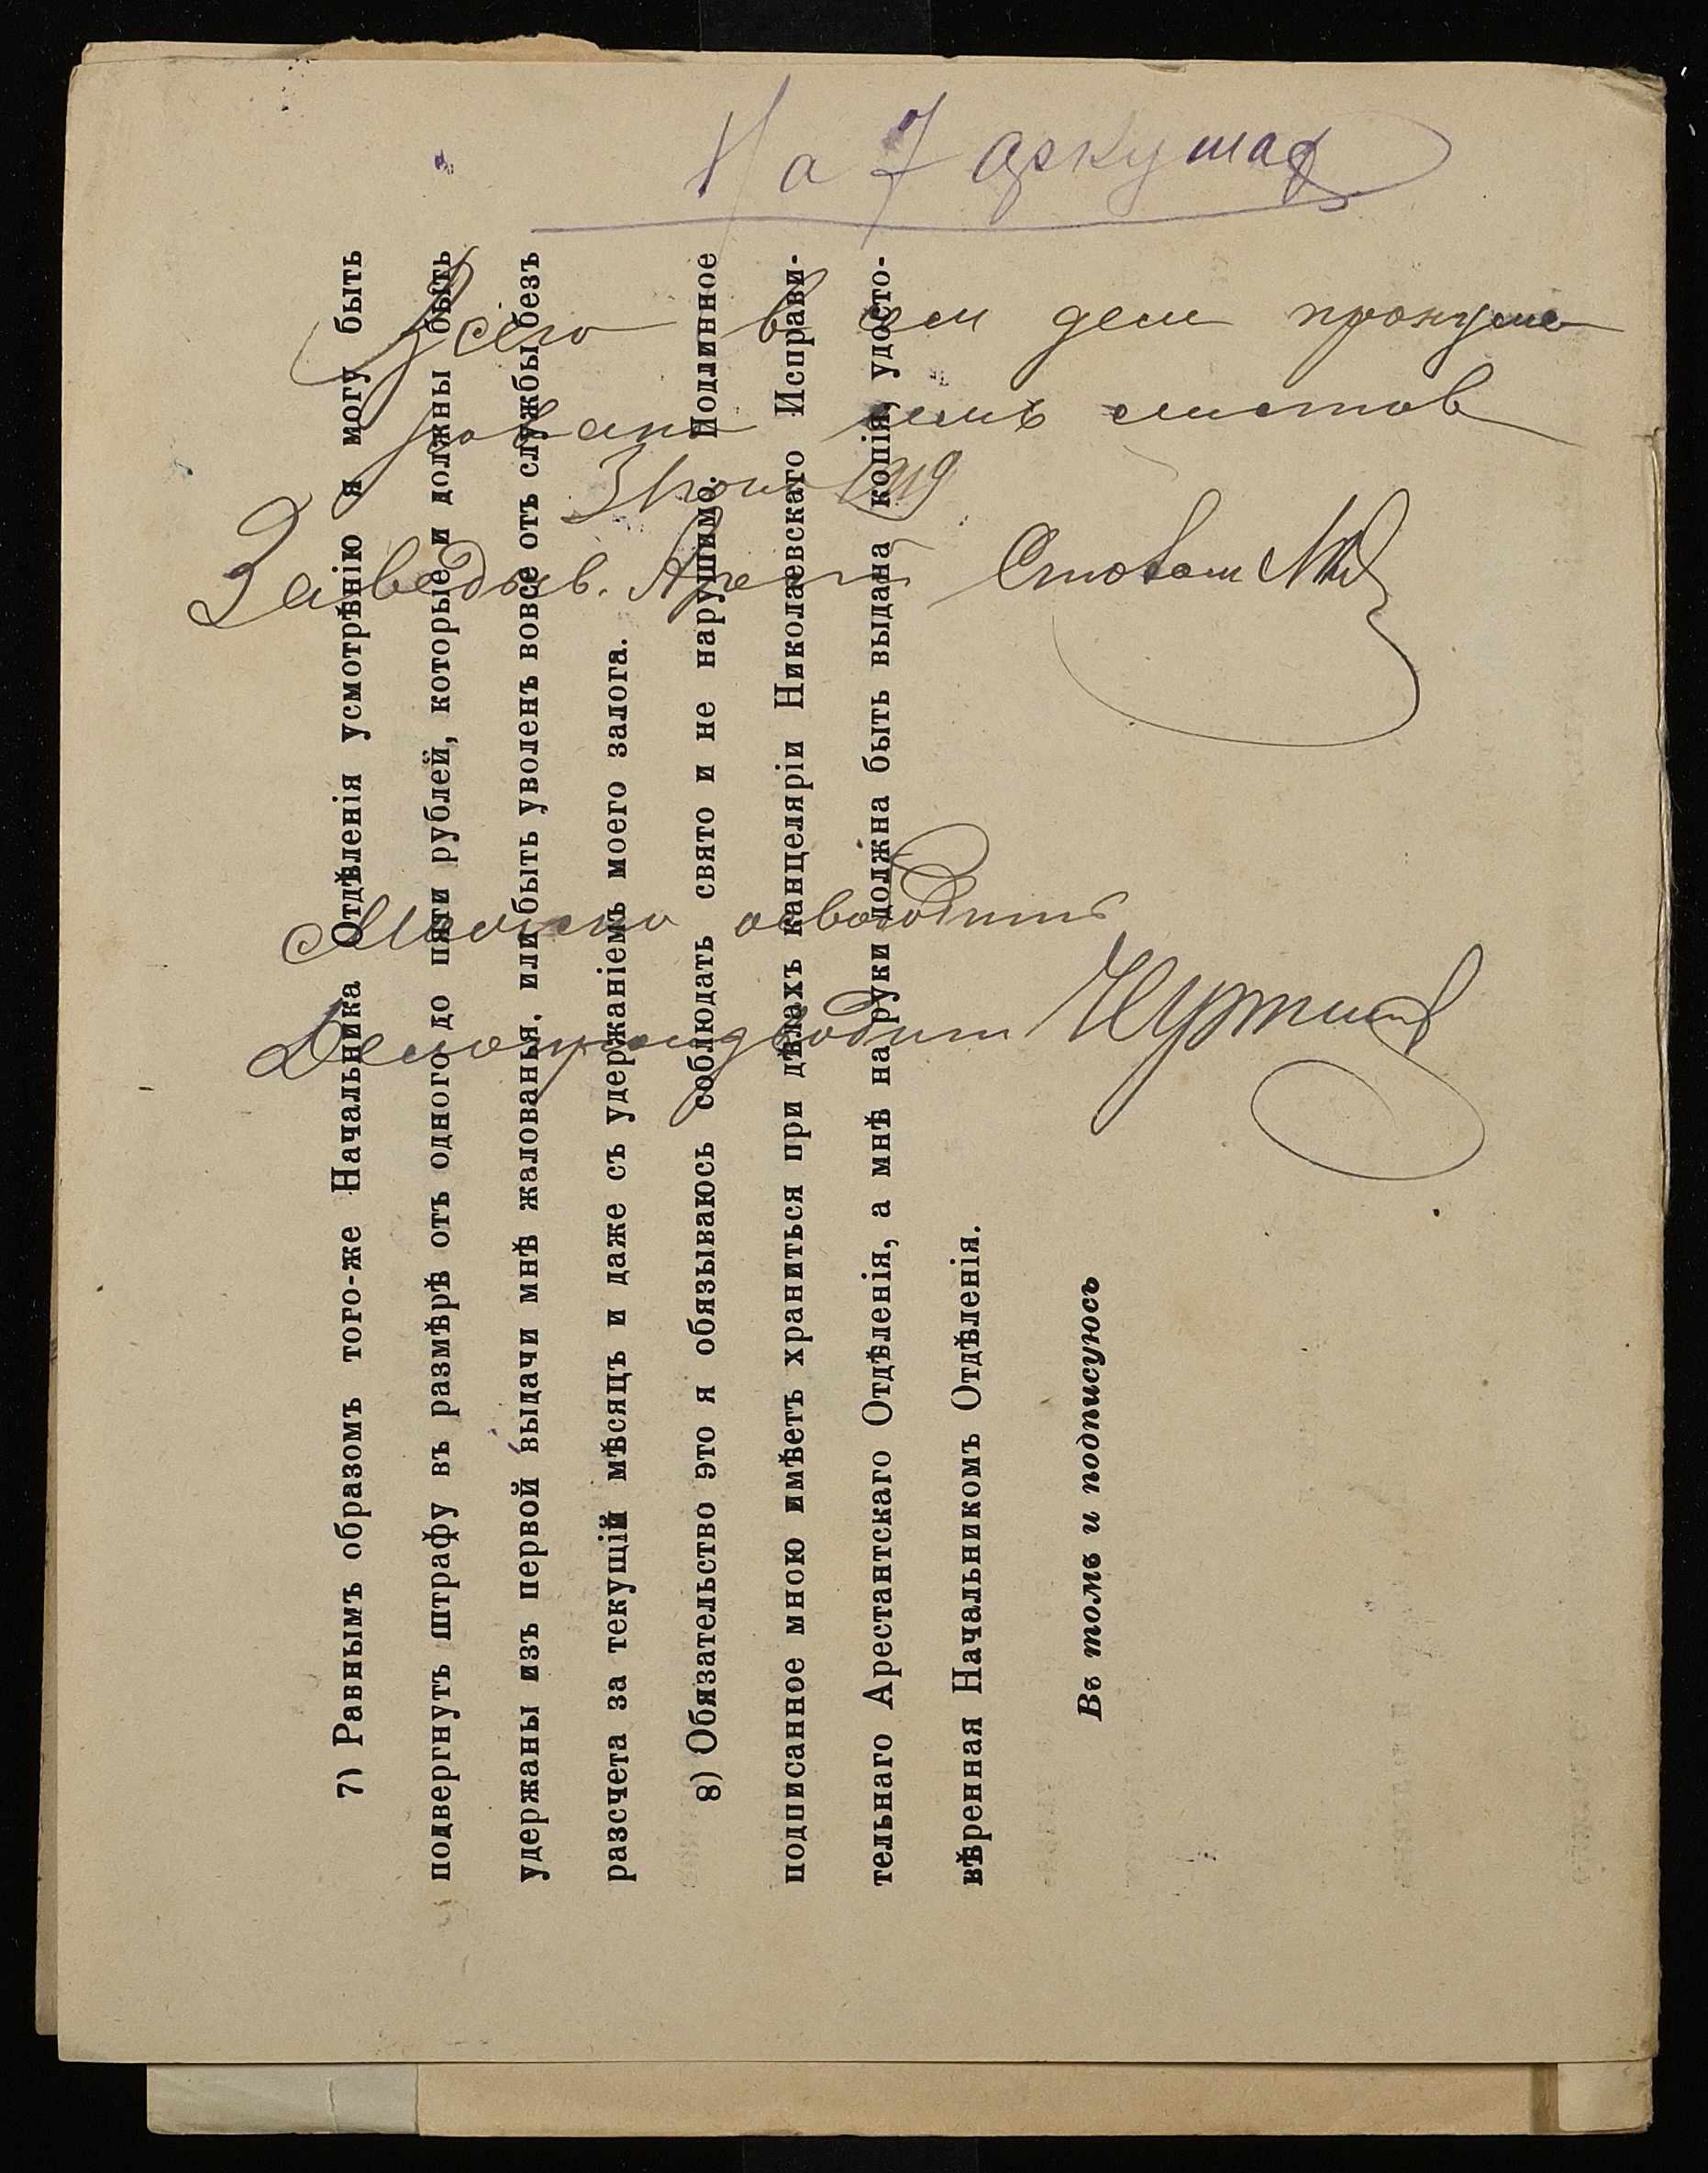 На 7 аркушах
Всего в сем деле пронуме
ровано семь листов
3 1919
Заведыв.
Можно освободить
Делопроизводит
7) Равнымъ образомъ того-же Начальника Отдѣленія усмотрѣнію я могу быть
подвергнутъ штрафу въ размѣрѣ отъ одного до пяти рублей, которые и должны быть
удержаны изъ первой выдачи мнѣ жалованья, или быть уволенъ вовсе отъ службы безъ
разсчета за текущій мѣсяцъ и даже съ удержаніемъ моего залога.
8) Обязательство это я обязываюсь соблюдать свято и не нарушимо. Подлинное
подписанное мною имѣетъ храниться при дѣлахъ канцеляріи Николаевскаго Исправи-
тельнаго Арестантскаго Отдѣленія, а мнѣ на руки должна быть выдана копія, удосто-
вѣренная Начальникомъ Отдѣленія.
Въ томъ и подписуюсь